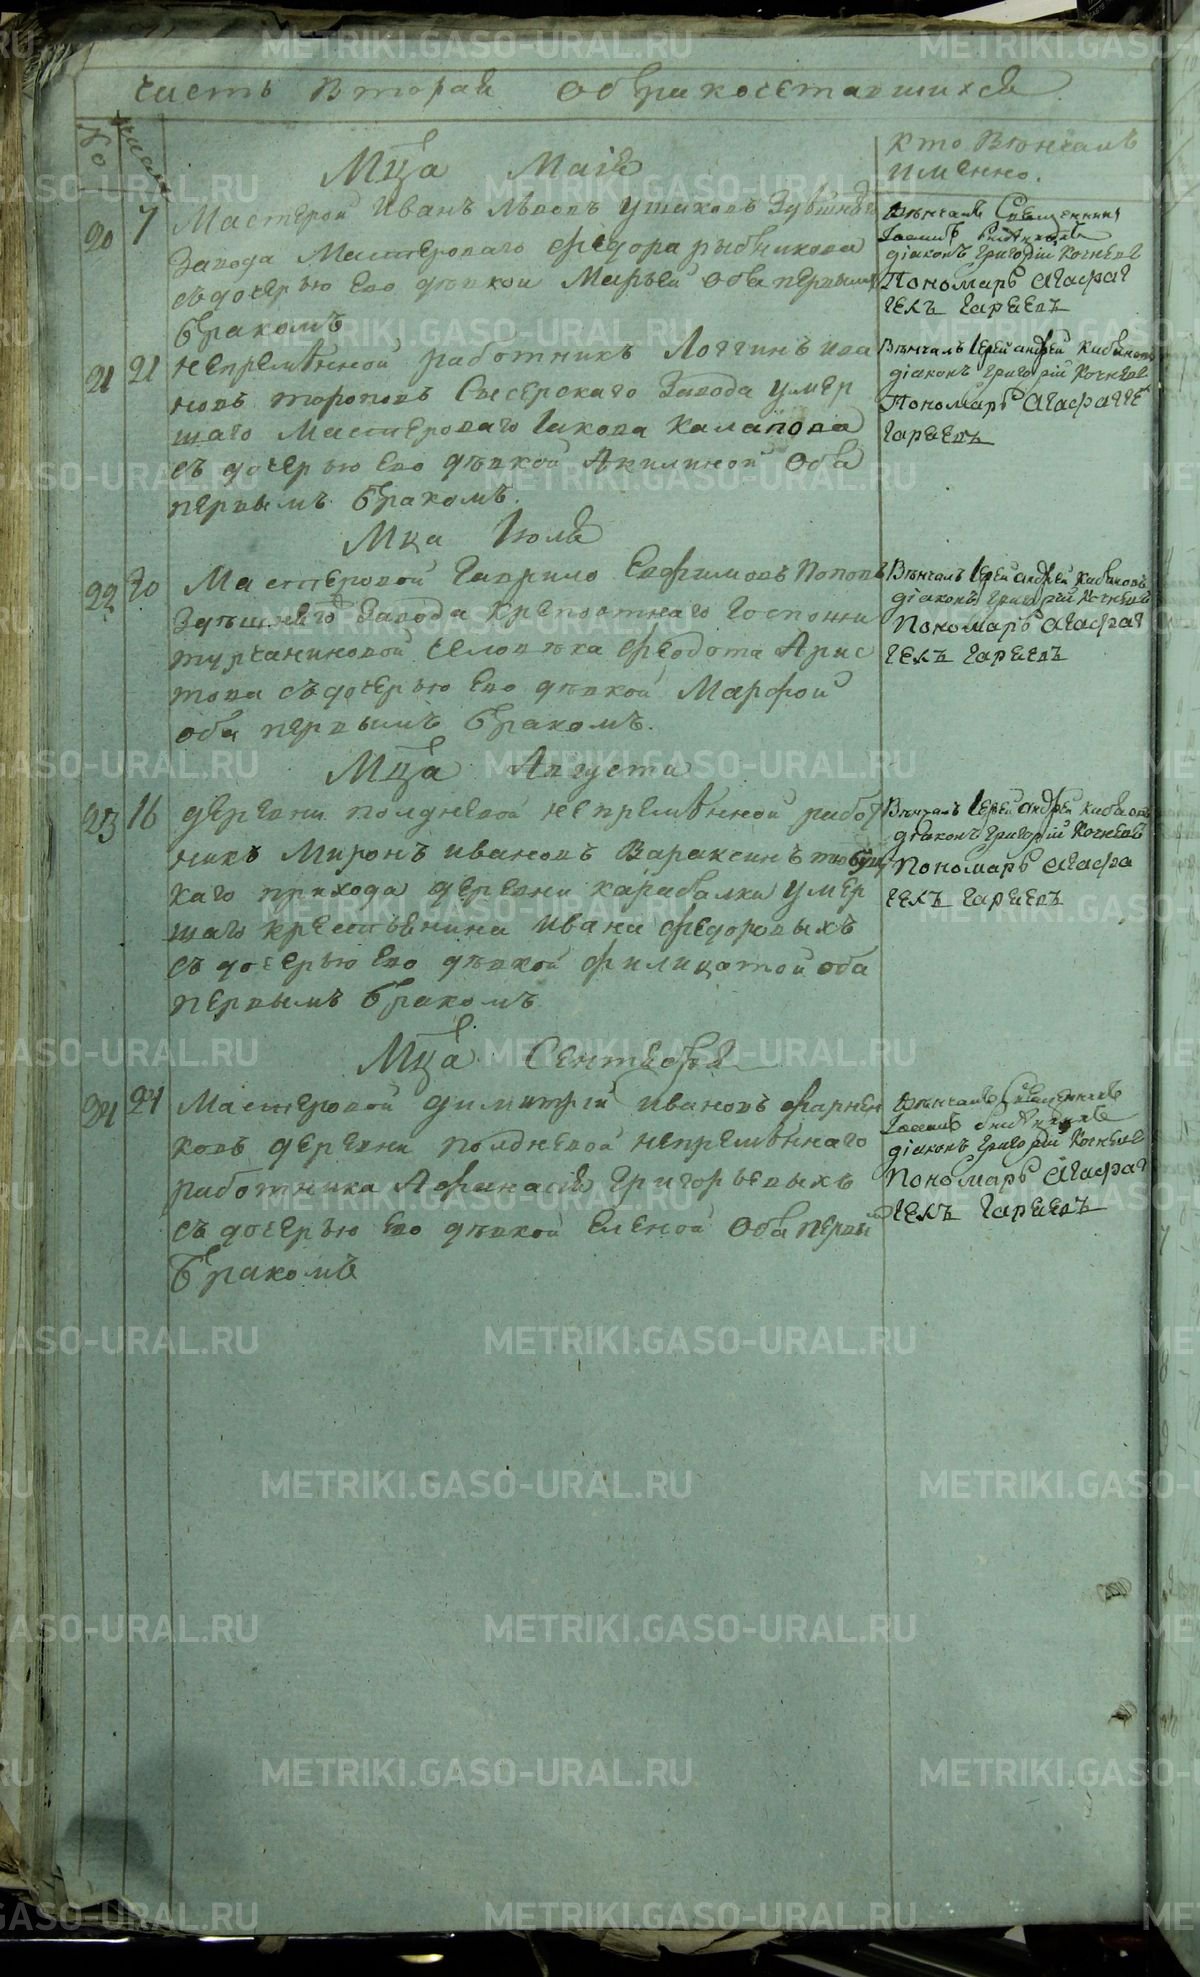 Часть Вторая О бракосетавшихся
No
число
кто Венчалъ
имянно.
Мца Маія
20 7 Мастерой Иванъ Львовъ Ушаковъ
Завода Мастероваго Федора рыбникова
съ дочерью ево девкой Марьей оба первымъ
бракомъ
Венчалъ Священникъ
діаконъ Григорій Кочневъ
Пономарь Агафаг
гелъ Гаряевъ
21 21 Непременной работникъ Логгинъ ива
новъ тороповъ Сысерскаго Завода умер
шаго Мастероваго Іакова Калапова
съ дочерью ево девкой Акилиной оба
первымъ бракомъ.
Венчалъ Іерей андрей
діаконъ Григорій Кочневъ
Пономарь
Гаряевъ
Мца Іюля
22 20 Мастеровой Гаврило Евфимовъ Поповъ
Здешнего Завода крепостнаго Госпожи
турчаниновой человека Феодота Арис
това съ дочерью ево девкой Марфой
оба первымъ бракомъ.
Венчалъ Іерей андрей
діаконъ Григорій Кочневъ
Пономарь Агафаг
гелъ Гаряевъ
Мца Августа
23 16 деревни полдневой непременной работ
никъ Миронъ ивановъ Вараксинъ
каго прихода деревни карабалки умер
шаго крестьянина ивана федоровыхъ
съ дочерью ево девкой филицатой оба
первымъ бракомъ
Венчалъ Іерей андрей
діаконъ Григорій Кочневъ
Пономарь Агафа
гелъ Гаряевъ
Мца Сентября
24 24 Мастеровой димитрій ивановъ
ковъ деревни полдневой непременнаго
работника Афанасія Григорьевыхъ
съ дочерью ево девкой Еленой оба первы
бракомъ
Венчалъ Священникъ
діаконъ Григорій Кочневъ
Пономарь Агафаг
гелъ Гаряевъ
METRIKI.GASO-URAL.RU